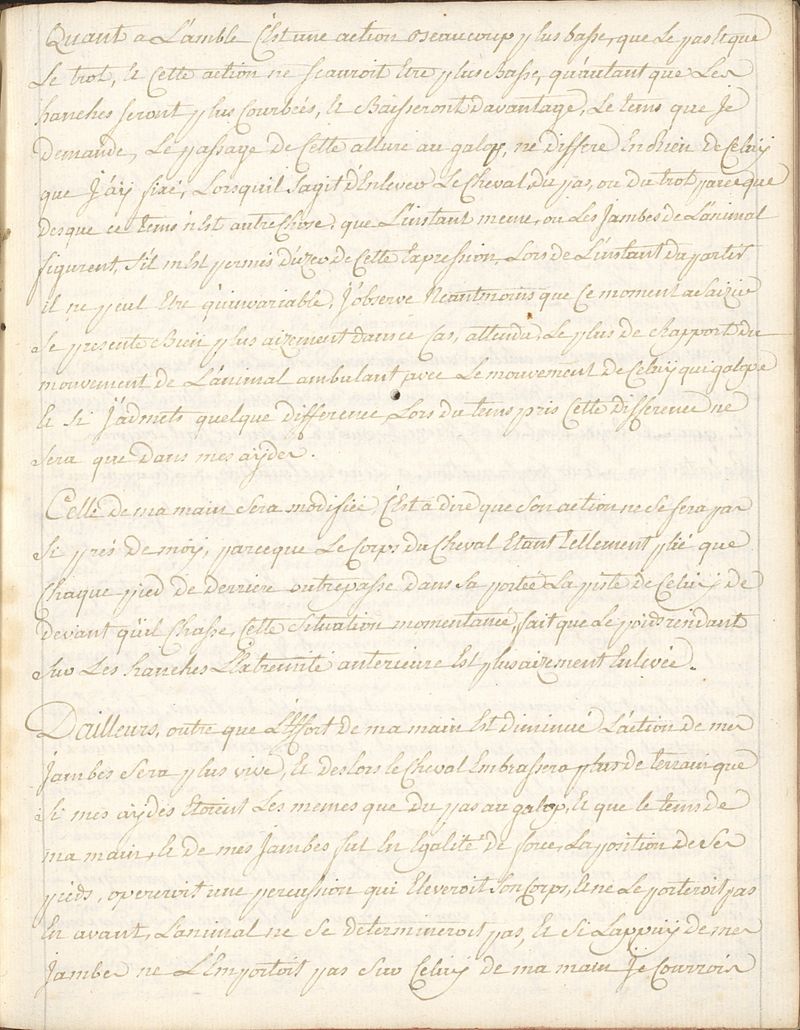 Quant a L'amble C'est une action Beaucoup plus basse, que Le pas et que
Le trot, et Cette action ne scauroit Etre plus Basse, qu'autant que Les
hanches seront plus Courbées, et Baisseront davantage, Le tems que Je
demande, Le passage de Cette allure au galop, ne differe En Rien de Celuy
que J'ay fixé, Lorsquil S'agit d'Enlever Le Cheval du pas, ou du trot parceque
desque ce tems n'Est autre Chose, que L'instant meme, ou Les Jambes de L'animal
figurent, s'il m'Est permis d'uzer de Cette Expression, Lors de L'instant du partir
il ne peut Etre qu'invariable, J'observe Neantmoins que Ce moment a Saizir
Se presente Bien plus aizement dans ce Cas, attendu, Le plus de Rapport du
mouvement de L'animal ambulant avec Le mouvement de Celuy qui galope
Et si J'admets quelque difference, Lors du tems pris Cette difference ne
Sera que dans mes aydes.
Celle de ma main Sera modifiée, C'Est a dire que Son action ne Se fera pas
Si prés de moy, parceque Le Corps du Cheval Etant Tellement plié que
Chaque pied de derriere outrepasse dans Sa portée La piste de Celuy de
devant qu'il Chasse, Cette Situation momentanée, fait que Le poids rendant
Sur Les hanches L'Extremité anterieure Est plus aizement Enlevée.
D'ailleurs, outre que L'Effort de ma main Est diminué L'action de mes
Jambes Sera plus vive, Et deslors le Cheval Embrassera plus de terrain que
Si mes aydes Etoient Les memes que du pas au galop, Et que le tems de
ma main, et de mes Jambes fut En Egalité de force, La position de Ses
pieds, opereroit une percussion qui Eleveroit Son Corps, Et ne Le porteroit pas
En avant, L'animal ne Se determineroit pas, Et Si L'appuy de mes
Jambes ne L'Emportoit pas Sur Celuy de ma main Je Courrois